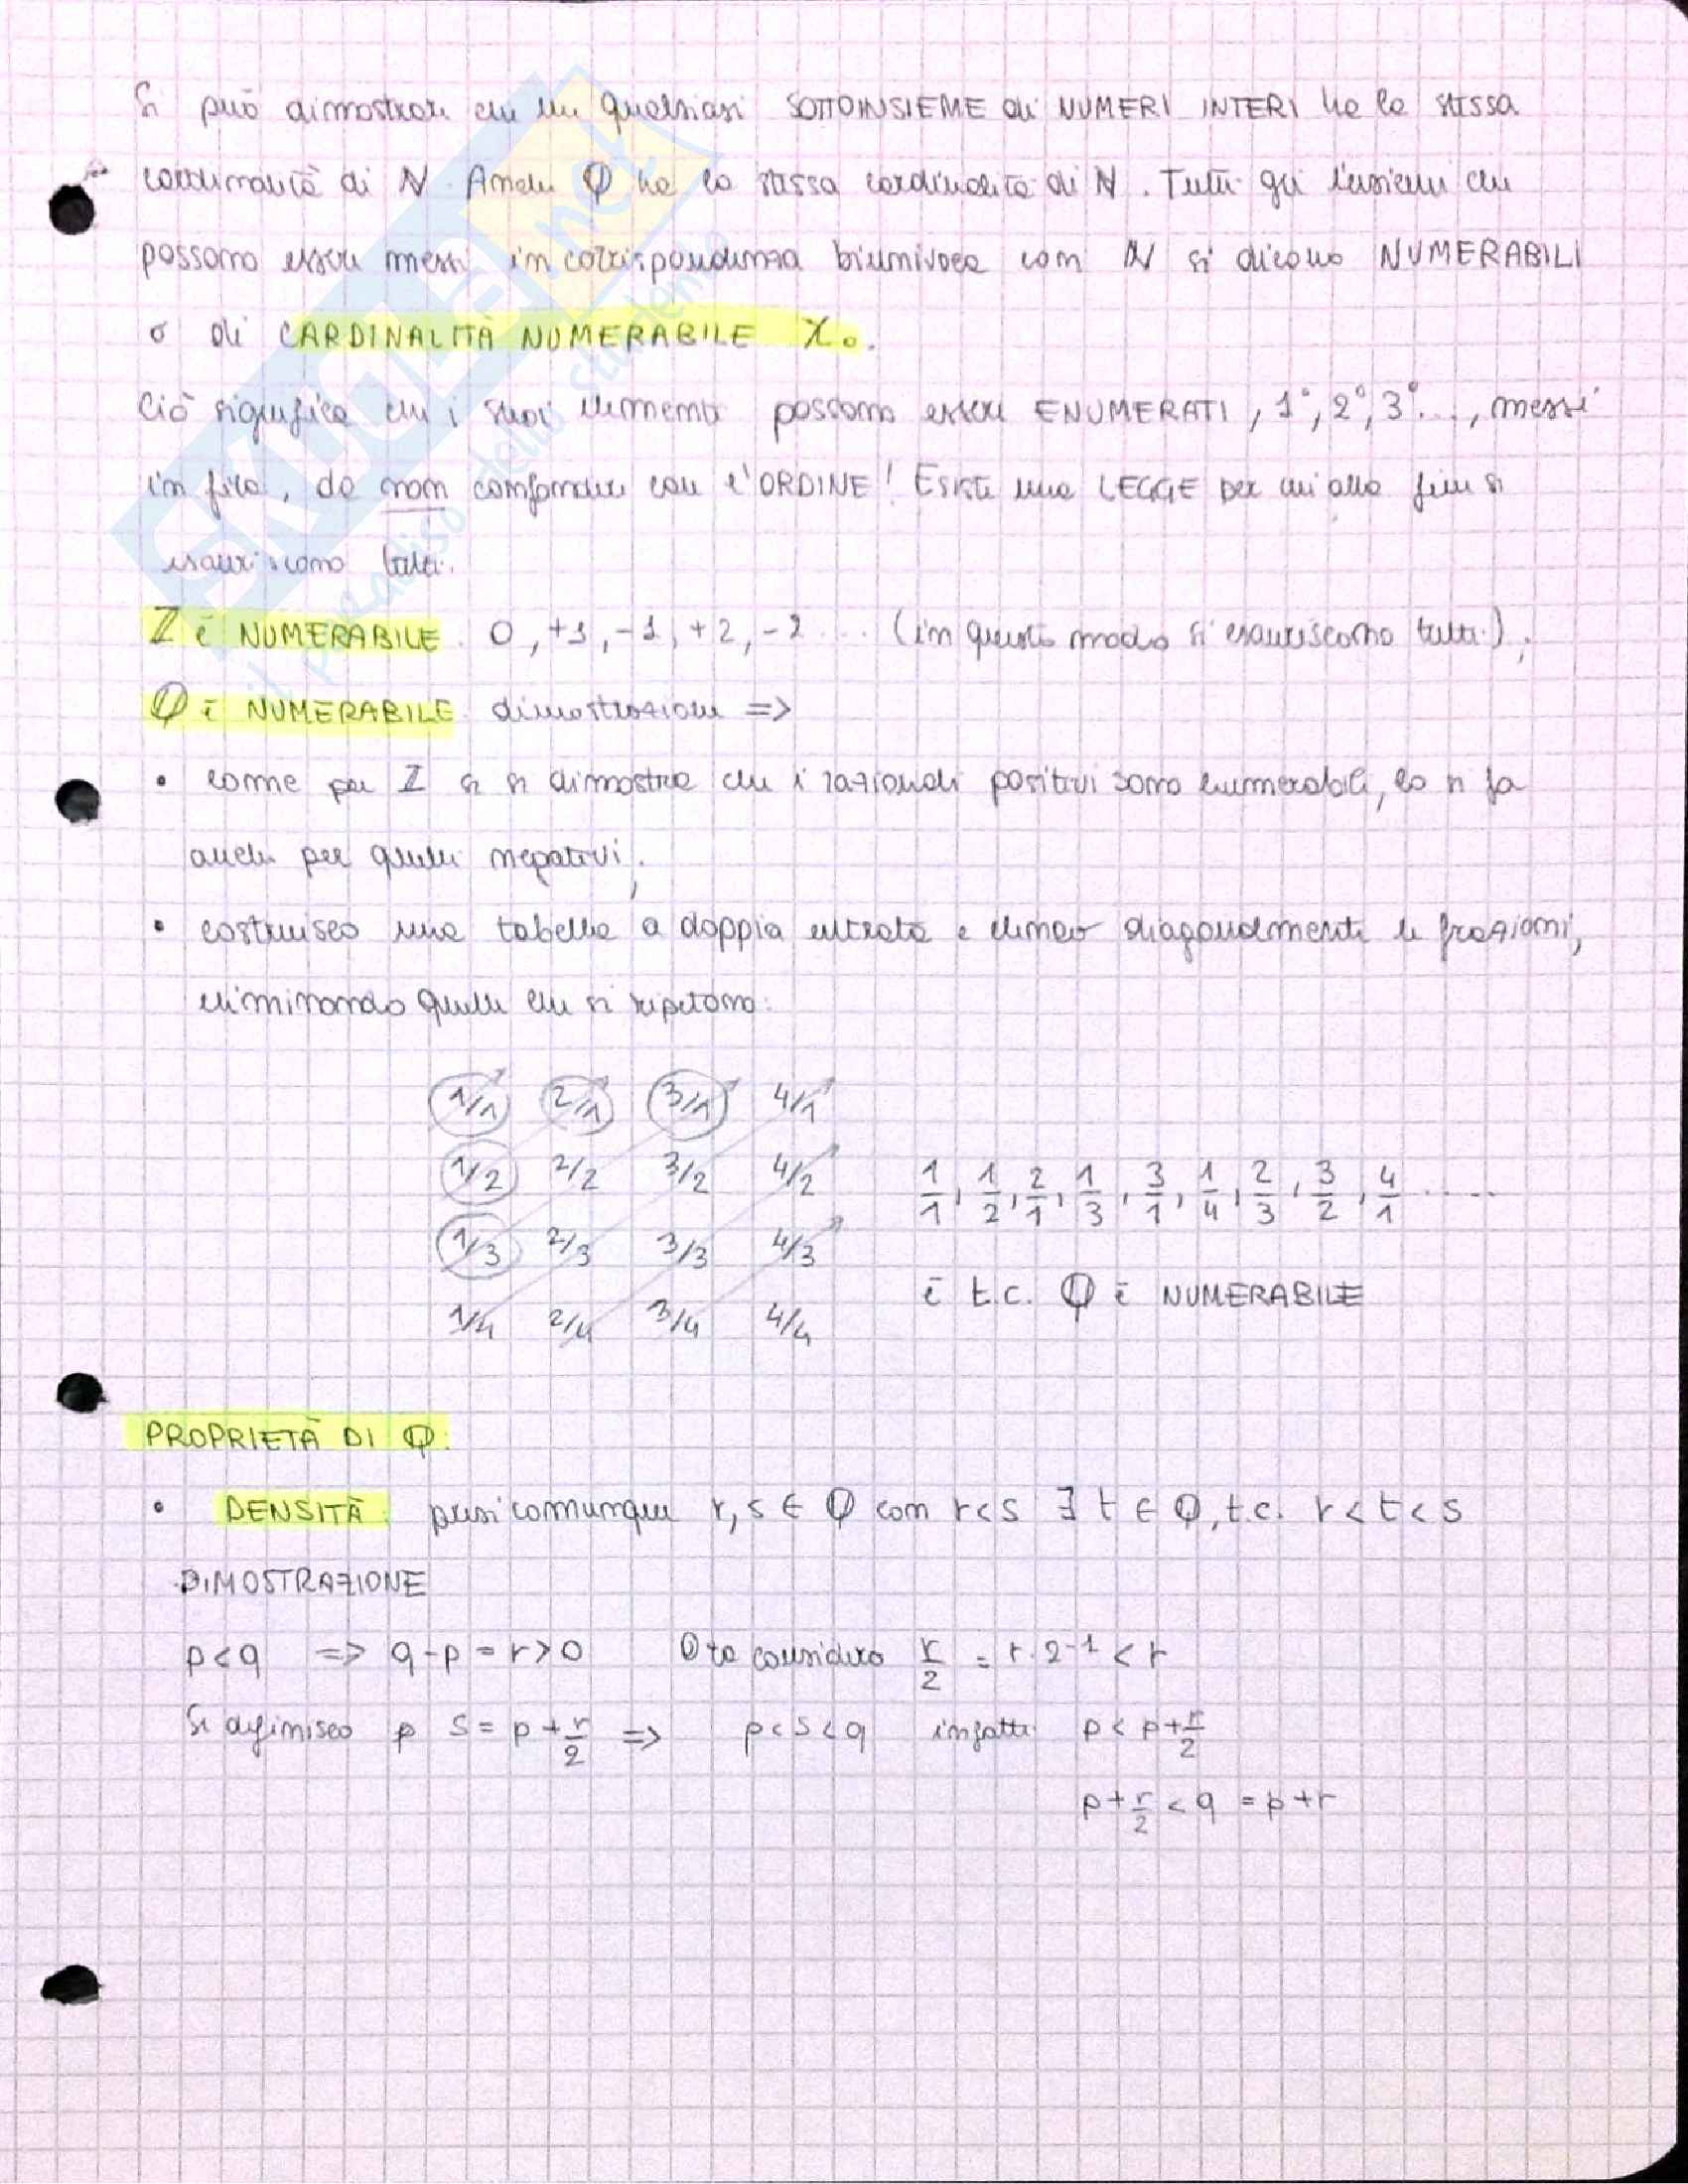 Si può dimostrare che un qualsiasi SOTTOINSIEME di NUMERI INTERI ha la stessa
cardinalità di ℕ. Anche ℚ ha la stessa cardinalità di ℕ. Tutti gli insiemi che
possono essere messi in corrispondenza biunivoca con ℕ si dicono NUMERABILI
o di CARDINALITÀ NUMERABILE χ₀.
Ciò significa che i suoi elementi possono essere ENUMERATI, 1°, 2°, 3°..., messi
in fila, da non confondere con l'ORDINE! Esiste una LEGGE per cui alla fine si
esauriscono tutti.
ℤ è NUMERABILE. 0, +1, -1, +2, -2 ... (in questo modo si esauriscono tutti);
ℚ è NUMERABILE. dimostrazione =>
• come per ℤ si dimostra che i razionali positivi sono enumerabili, lo si fa
anche per quelli negativi;
• costruisco una tabella a doppia entrata e elenco diagonalmente le frazioni,
eliminando quelle che si ripetono:
1/1 2/1 3/1 4/1
1/2 2/2 3/2 4/2
1/1, 1/2, 2/1, 1/3, 3/1, 1/4, 2/3, 3/2, 4/1 .....
1/3 2/3 3/3 4/3
è t.c. ℚ è NUMERABILE
1/4 2/4 3/4 4/4
PROPRIETÀ DI ℚ:
• DENSITÀ: presi comunque r, s ∈ ℚ con r < s ∃ t ∈ ℚ, t.c. r < t < s
DIMOSTRAZIONE
p < q => q - p = r > 0 Ora considero r/2 = r · 2⁻¹ < r
Si definisco p s = p + r/2 => p < s < q infatti p < p + r/2
p + r/2 < q = p + r
SKUOLA.net
il paradiso dello studente